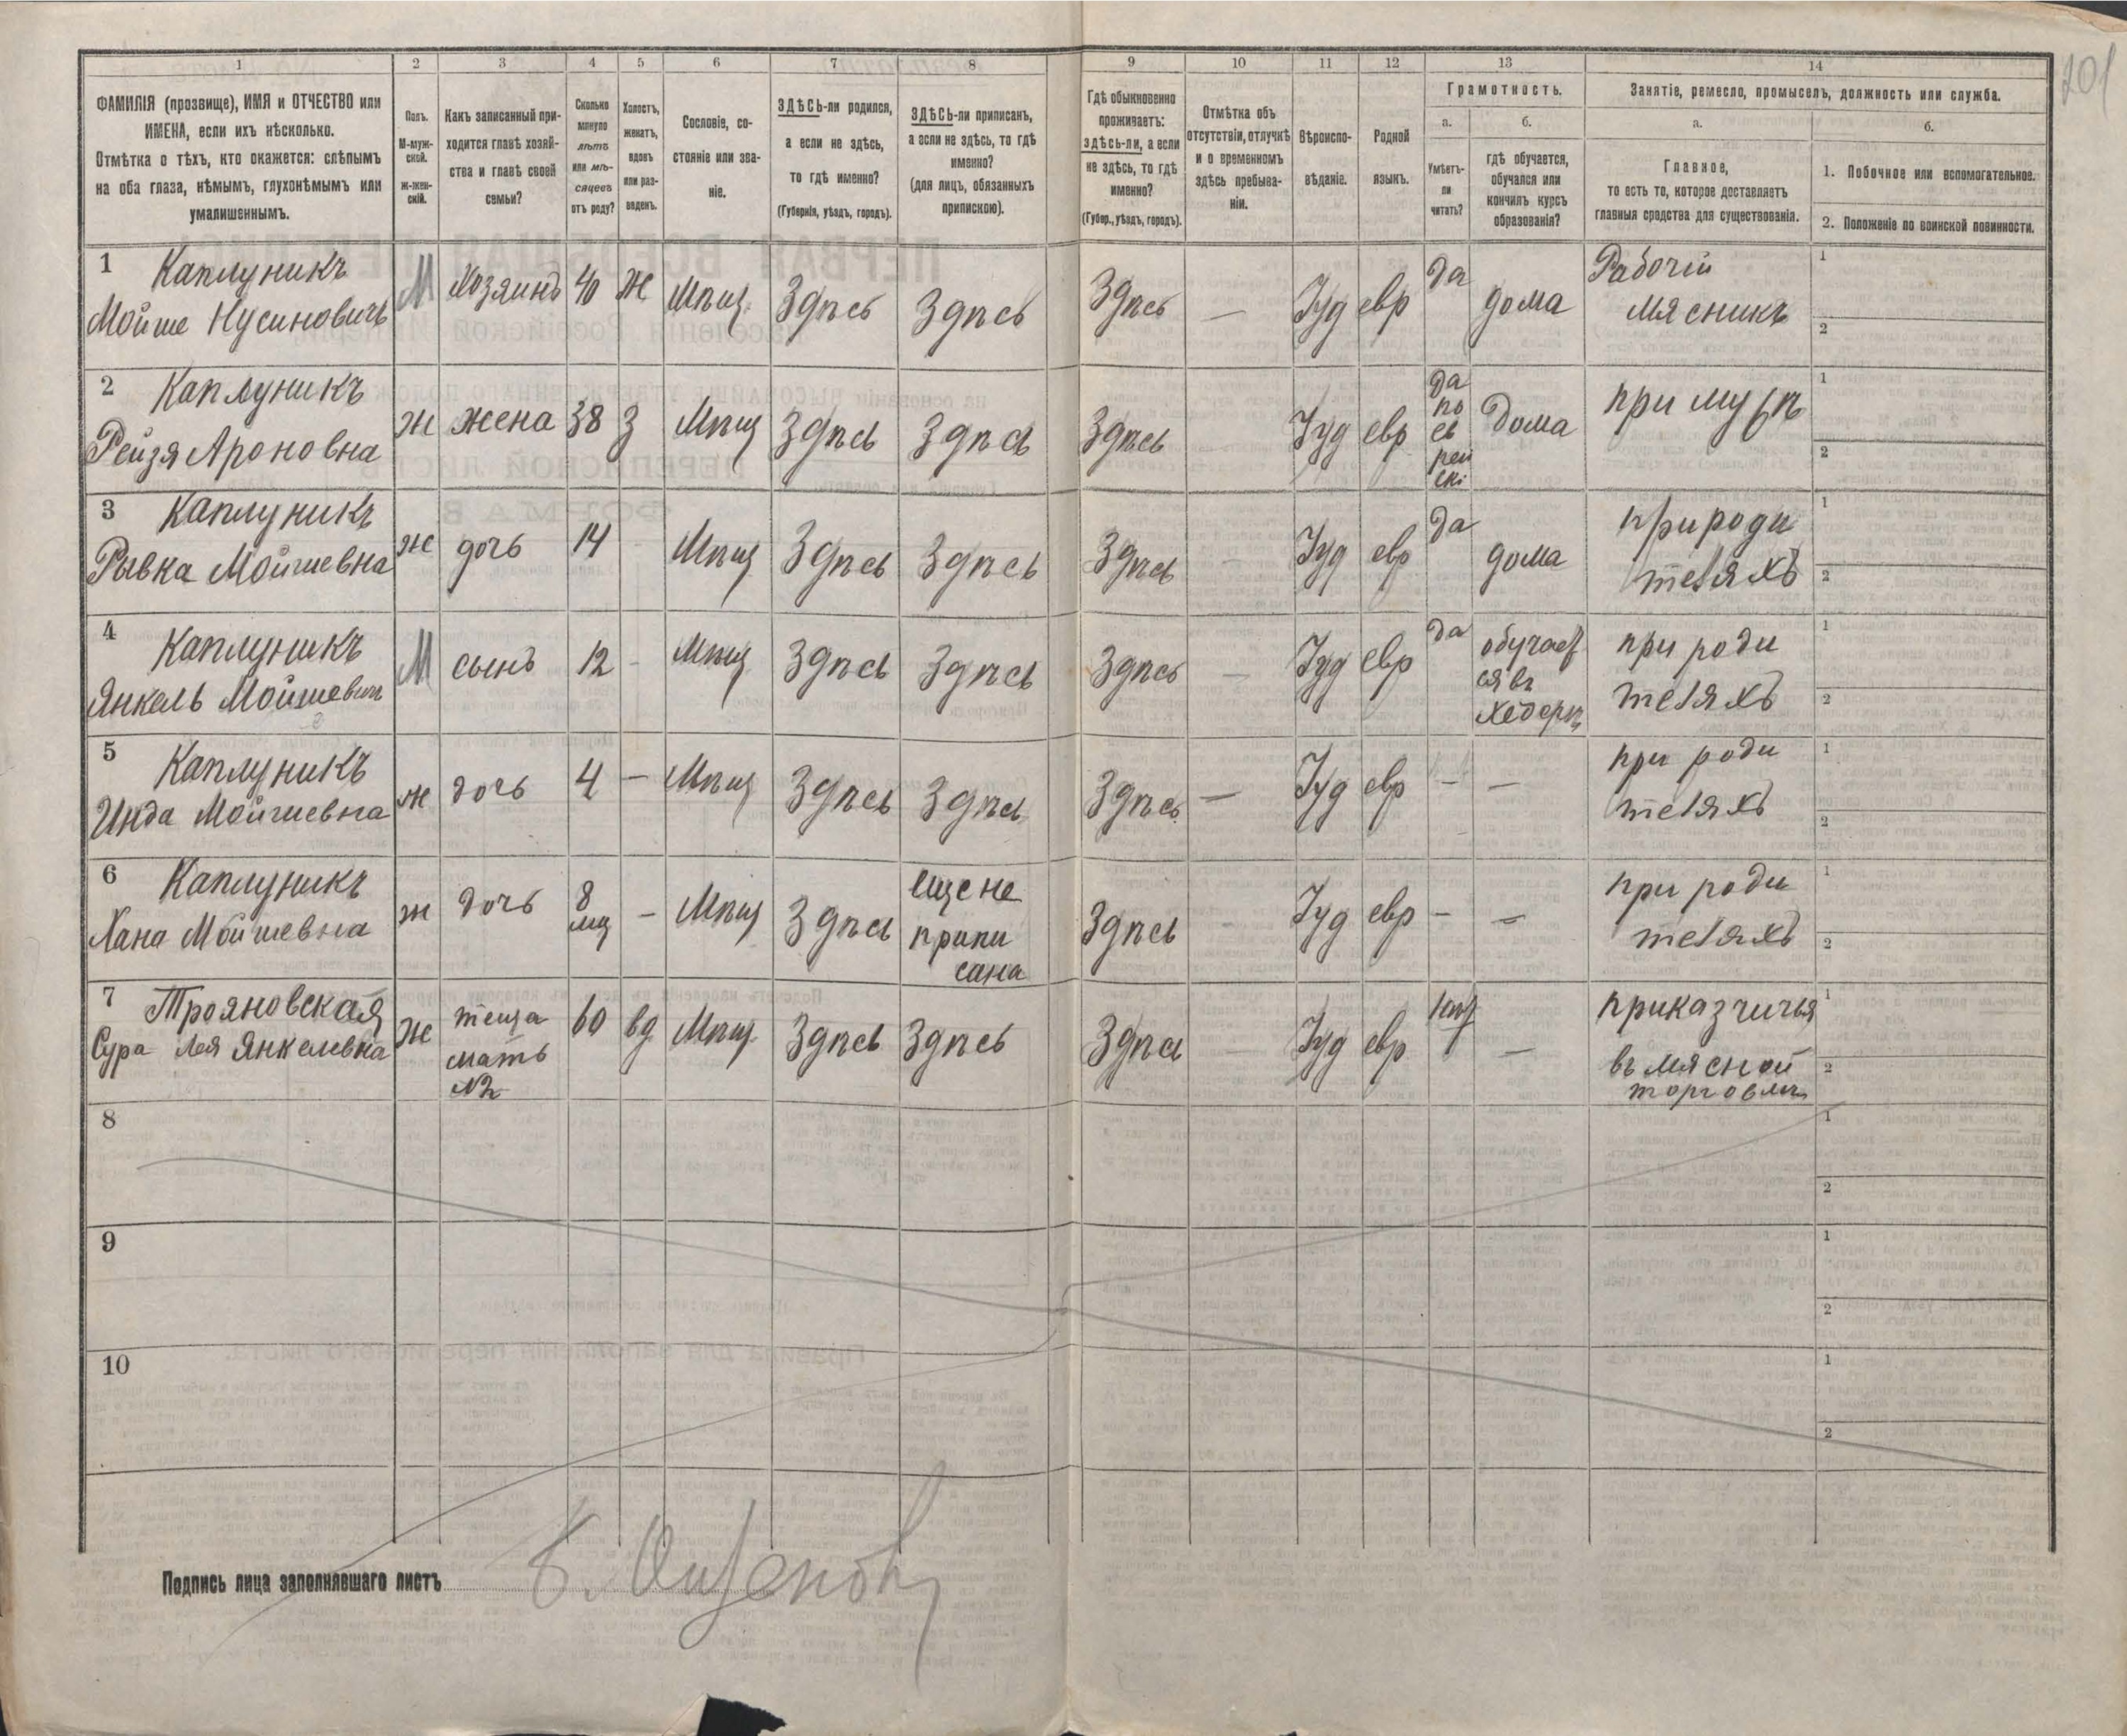 201
1 2 3 4 5 6 7 8 9 10 11 12 13 14
ФАМИЛІЯ (прозвище), ИМЯ и ОТЧЕСТВО или
ИМЕНА, если ихъ нѣсколько.
Отмѣтка о тѣхъ, кто окажется: слѣпымъ
на оба глаза, нѣмымъ, глухонѣмымъ или
умалишеннымъ.
Полъ.
М-муж-
ской.
ж-жен-
скій.
Какъ записанный при-
ходится главѣ хозяй-
ства и главѣ своей
семьи?
Сколько
минуло
лѣтъ
или мѣ-
сяцевъ
отъ роду?
Холостъ,
женатъ,
вдовъ
или раз-
веденъ.
Сословіе, со-
стояніе или зва-
ніе.
ЗДѢСЬ-ли родился,
а если не здѣсь,
то гдѣ именно?
(Губернія, уѣздъ, городъ).
ЗДѢСЬ-ли приписан,
а если не здѣсь, то гдѣ
именно?
(для лицъ, обязанныхъ
припискою).
Гдѣ обыкновенно
проживаетъ:
здѣсь-ли, а если
не здѣсь, то гдѣ
именно?
(Губер., уѣздъ, городъ).
Отмѣтка объ
отсутствіи, отлучкѣ
и о временномъ
здѣсь пребыва-
ніи.
Вѣроиспо-
вѣданіе.
Родной
языкъ.
Грамотность.
а.
Умѣетъ-
ли
читать?
б.
гдѣ обучается,
обучался или
кончилъ курсъ
образованія?
Занятіе, ремесло, промыселъ, должность или служба.
а.
Главное,
то есть то, которое доставляетъ
главныя средства для существованія.
б.
1. Побочное или вспомогательное.
2. Положеніе по воинской повинности.
1 Каплуникъ
Мойше Нусиновичъ
М Хозяинъ 40 ж Мѣщ. Здѣсь Здѣсь Здѣсь — Іуд евр да дома
Рабочій
мясникъ
1
2
2 Каплуникъ
Рейзя Ароновна
ж жена 38 З Мѣщ Здѣсь Здѣсь Здѣсь Іуд евр
да
по
ев
рей
ски
дома
при мужѣ
1
2
3 Каплуникъ
Рывка Мойшевна
ж дочь 14 - Мѣщ Здѣсь Здѣсь Здѣсь — Іуд евр да дома
при роди
теляхъ
1
2
4 Каплуникъ
Янкель Мойшевич
М сынъ 12 - Мѣщ Здѣсь Здѣсь Здѣсь — Іуд евр да
обучает
ся въ
хедерѣ
при роди
теляхъ
1
2
5 Каплуникъ
Инда Мойшевна
ж дочь 4 — Мѣщ Здѣсь Здѣсь Здѣсь — Іуд евр — —
при роди
теляхъ
1
2
6 Каплуникъ
Хана Мойшевна
ж дочь
8
мц
- Мѣщ Здѣсь
еще не
припи
сана
Здѣсь - Іуд евр - —
при роди
теляхъ
1
2
7 Трояновская
Сура Лея Янкелевна
ж
теща
мать
№2
60 вд Мѣщ. Здѣсь Здѣсь Здѣсь — Іуд евр нѣт —
приказчичья
въ мясной
торговлѣ
1
2
8
1
2
9
1
2
10
1
2
Подпись лица заполнявшаго листъ